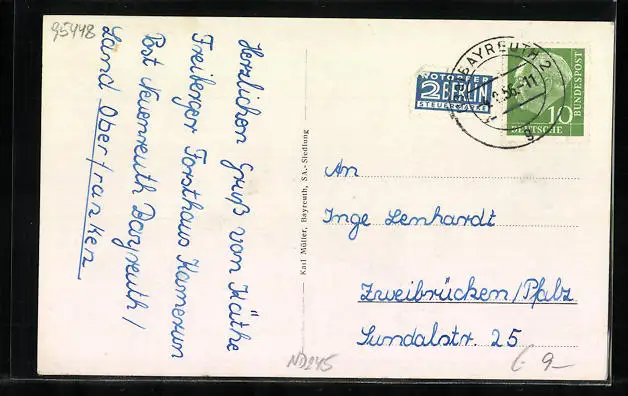 95448
Herzlichen Gruß von Käthe
Freiberger Forsthaus Kamerun
Post Neuenreuth Bayreuth /
Land Oberfranken.
Karl Müller, Bayreuth, SA.-Siedlung
NOTOPFER
2 BERLIN
STEUERMARKE
BAYREUTH 2
DEUTSCHE
BUNDESPOST
10
An
Inge Lenhardt
Zweibrücken/Pfalz
Sundalstr. 25
9-